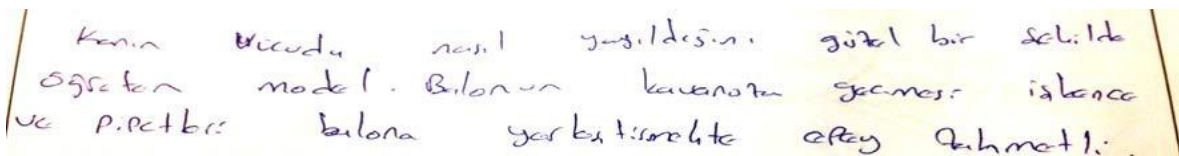 Kanın vücudu nasıl yayıldığını güzel bir şekilde
öğreten model. Balonun kavanoza geçmesi işkence
ve pipetleri balona yerleştirmekte epey zahmetli.